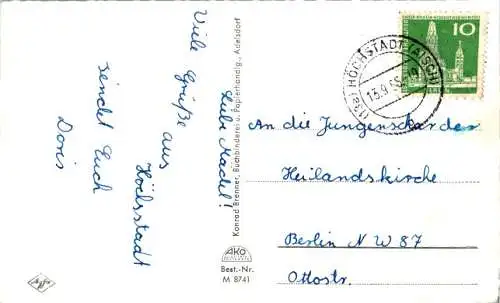 Liebe Mädel!
Viele Grüße aus
Höchstadt
sendet Euch
Doris
Konrad Brenner, Buchbinderei u. Papierhandlg., Adelsdorf
AKO
Best.-Nr.
M 8741
Agfa
10
(13a) HÖCHSTADT (AISCH)
An die Jungenschar der
Heilandskirche
Berlin N W 87
Ottostr.